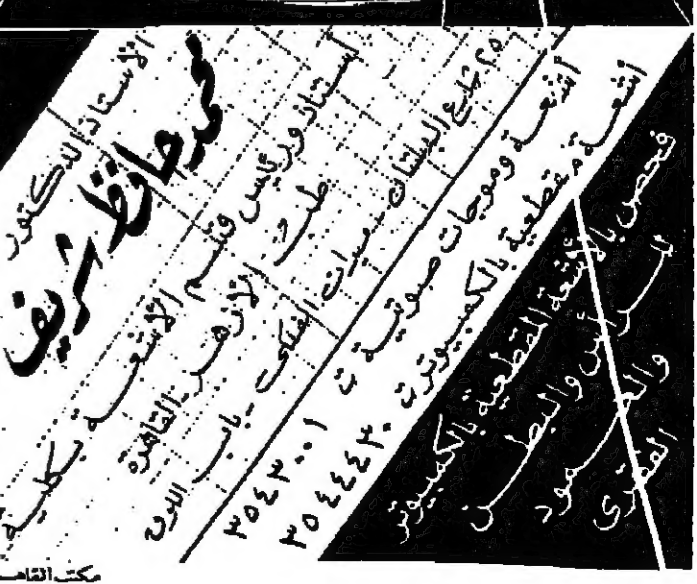 الاستاذ الدكتور
محمد حافظ شريف
استاذ ورئيس قسم الأشعة بكلية
طب الأزهر - القاهرة
٢٥ شارع البستان - ميدان الفلكى - باب اللوق
أشعة وموجات صوتية ت ٣٥٤٣٠٠١
أشعة مقطعية بالكمبيوتر ت ٣٥٤٤٤٣٠
فحص بالأشعة المقطعية بالكمبيوتر
للرأس والبطن
والعمود
الفقرى